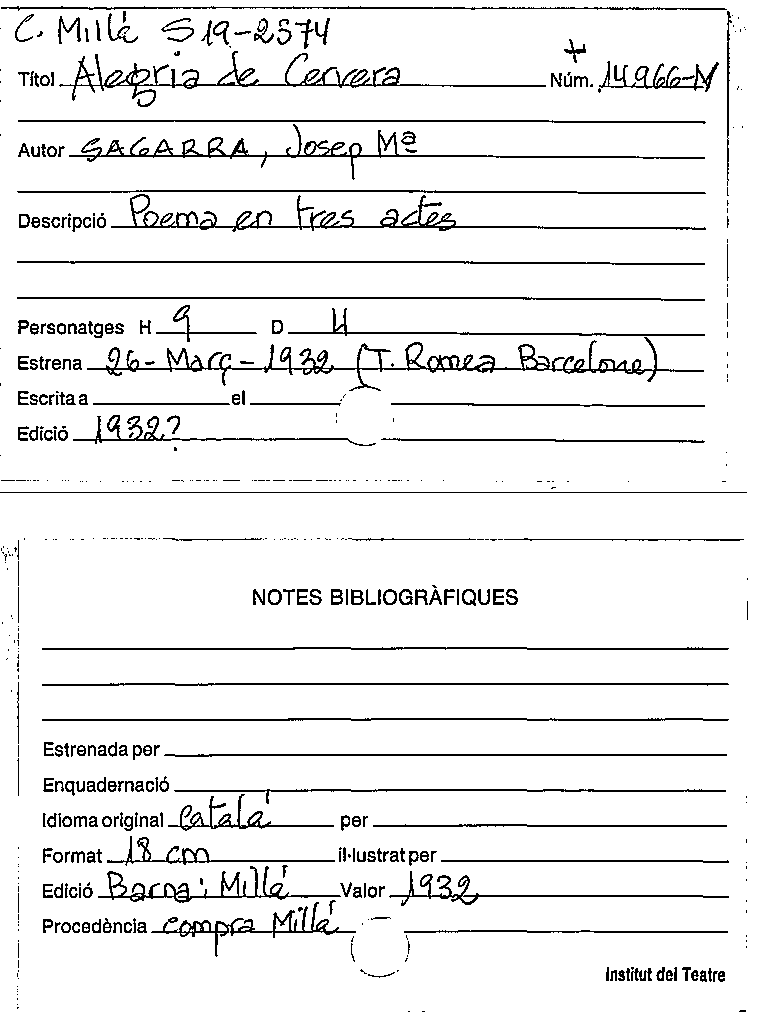 C. Millà S19-2574
+
Títol Alegria de Cervera Núm. 14966-N
Autor SAGARRA, Josep Mª
Descripció Poema en tres actes
Personatges H 9 D 4
Estrena 26-Març-1932 (T. Romea Barcelona)
Escrita a el
Edició 1932?
NOTES BIBLIOGRÀFIQUES
Estrenada per
Enquadernació
Idioma original català per
Format 18 cm il·lustrat per
Edició Barna: Millà Valor 1932
Procedència compra Millà
Institut del Teatre